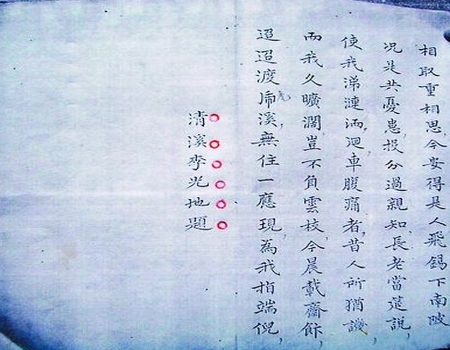 相取重相思今安得是人飛錫下南陂
况是共憂患投分過親知長老當筵說
使我涕漣洏迴車腹痛者昔人所猶譏
而我久曠濶豈不負雲枝今晨載齋餗
迢迢渡虎溪無住一應現為我指端倪
清溪李光地題